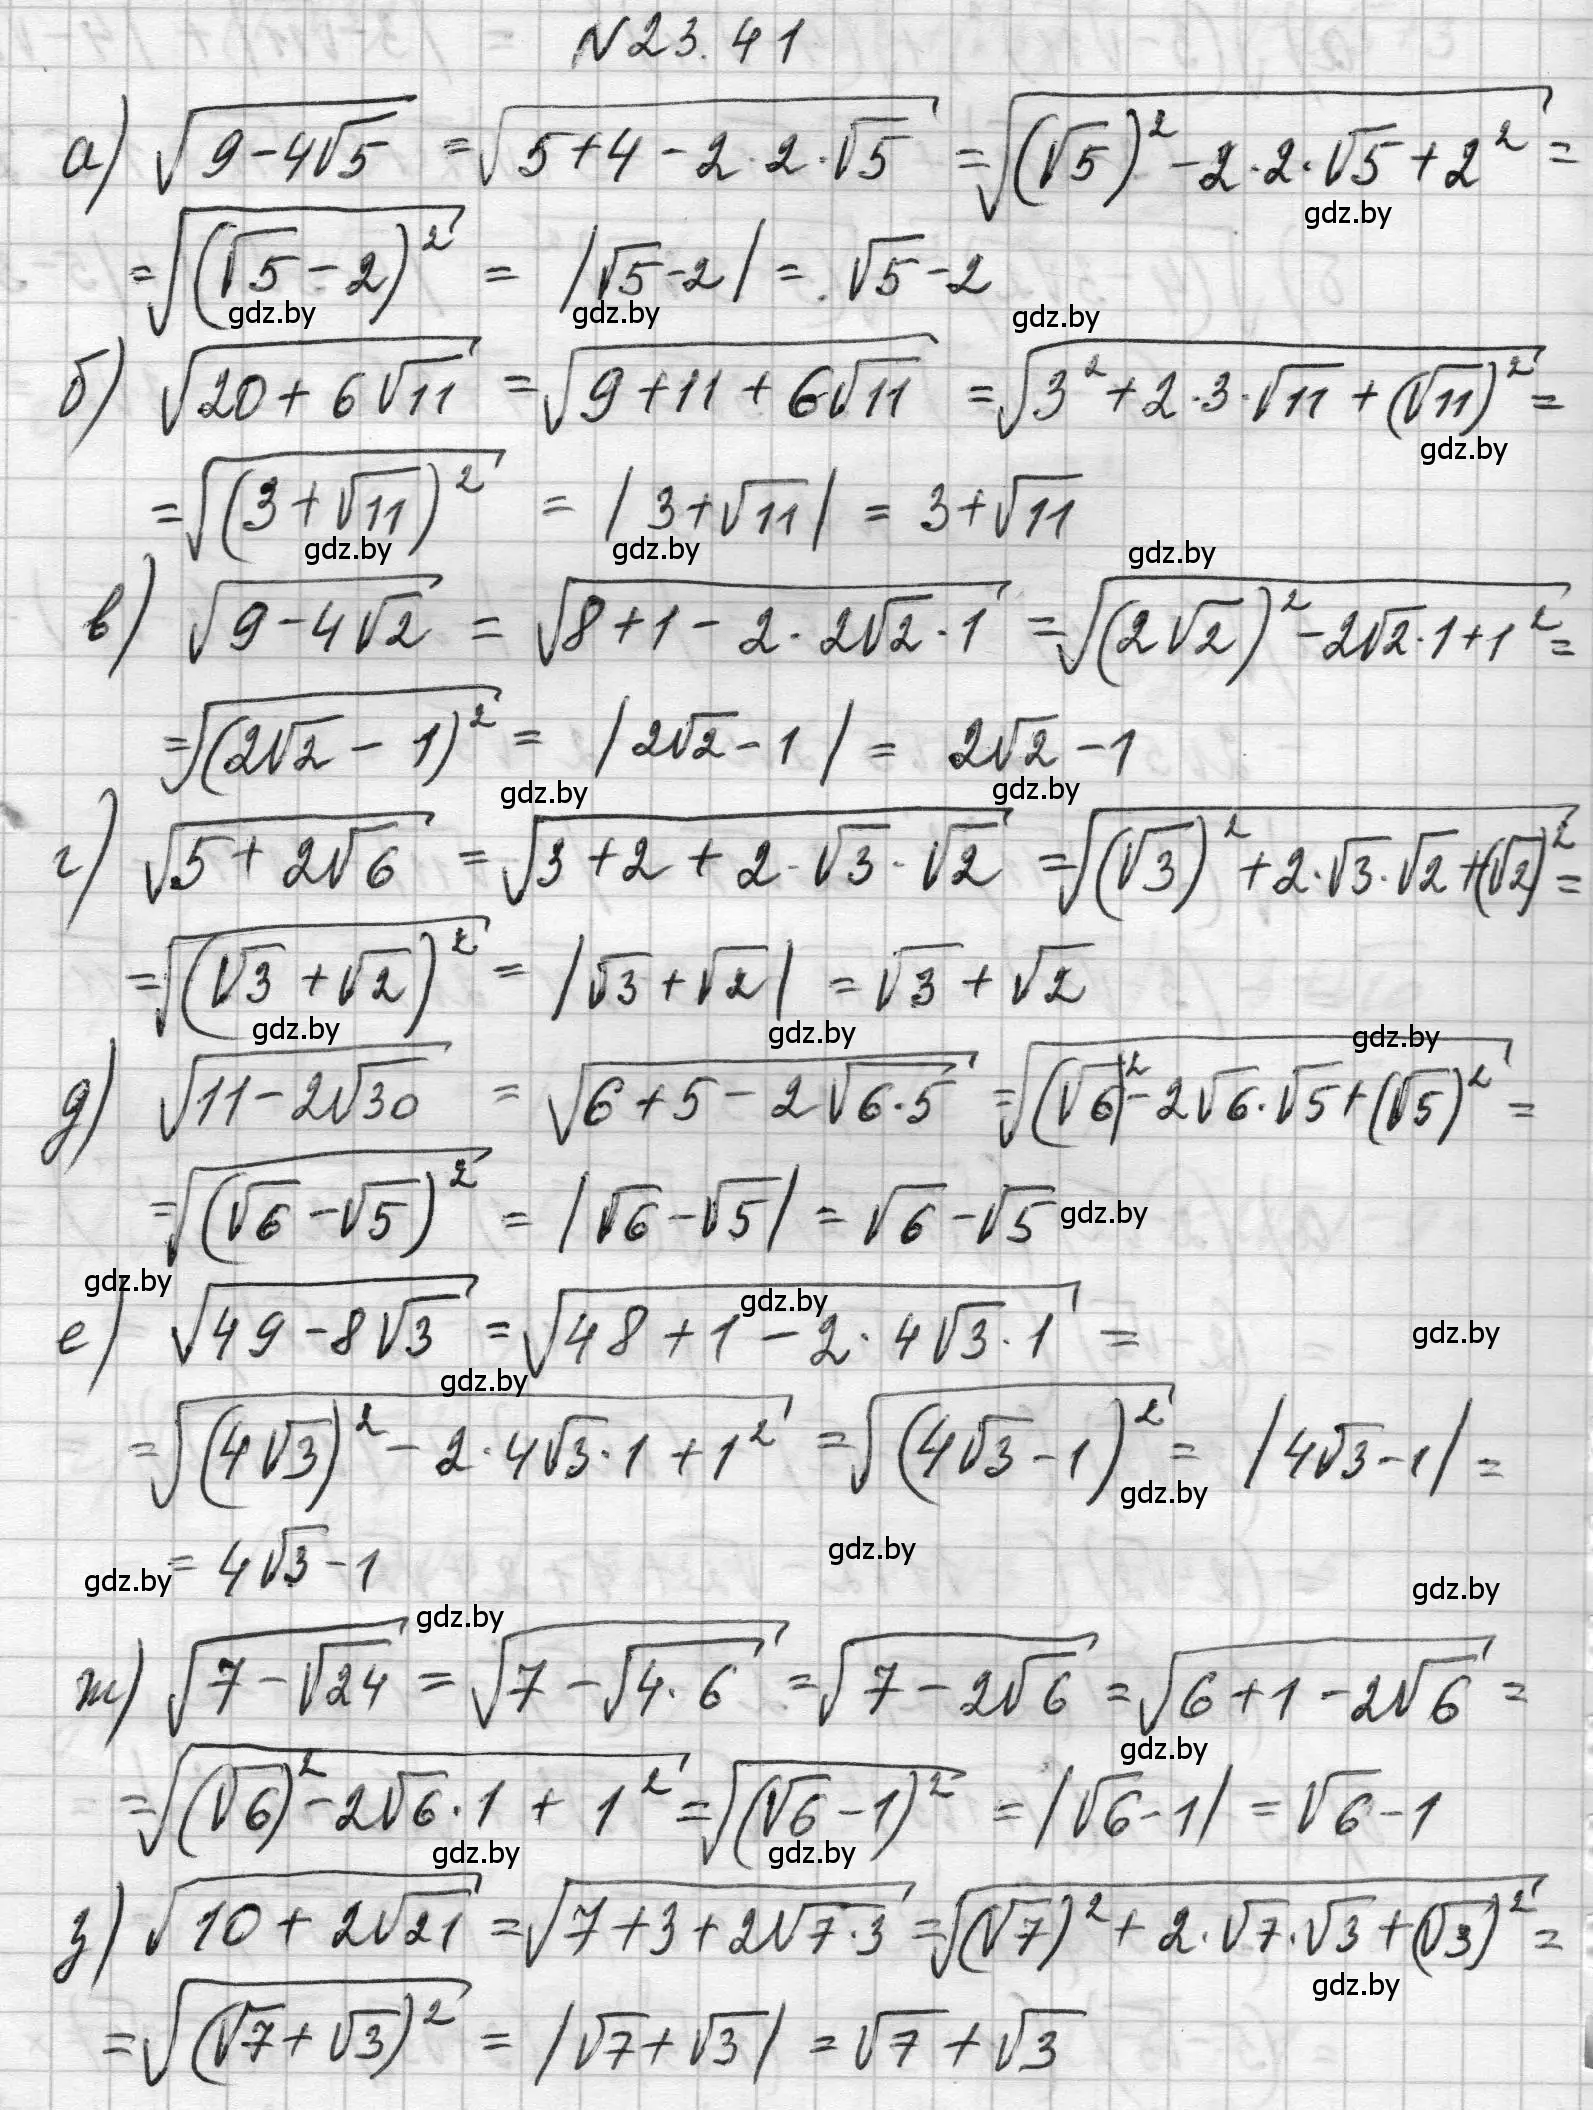 N23.41
а) √(9-4√5) = √(5+4-2·2·√5) = √((√5)²-2·2·√5+2²) =
gdz.by
= √((√5-2)²) = |√5-2| = √5-2
gdz.by gdz.by gdz.by
б) √(20+6√11) = √(9+11+6√11) = √(3²+2·3·√11+(√11)²) =
gdz.by
= √((3+√11)²) = |3+√11| = 3+√11
gdz.by gdz.by gdz.by
в) √(9-4√2) = √(8+1-2·2√2·1) = √((2√2)²-2√2·1+1²) =
= √((2√2-1)²) = |2√2-1| = 2√2-1
gdz.by gdz.by
г) √(5+2√6) = √(3+2+2·√3·√2) = √((√3)²+2·√3·√2+(√2)²) =
= √((√3+√2)²) = |√3+√2| = √3+√2
gdz.by gdz.by gdz.by
д) √(11-2√30) = √(6+5-2√(6·5)) = √((√6)²-2√6·√5+(√5)²) =
= √((√6-√5)²) = |√6-√5| = √6-√5 gdz.by
gdz.by gdz.by
е) √(49-8√3) = √(48+1-2·4√3·1) = gdz.by
gdz.by
= √((4√3)²-2·4√3·1+1²) = √((4√3-1)²) = |4√3-1| =
gdz.by
gdz.by = 4√3-1 gdz.by gdz.by
gdz.by
ж) √(7-√24) = √(7-√(4·6)) = √(7-2√6) = √(6+1-2√6) =
gdz.by
= √((√6)²-2√6·1+1²) = √((√6-1)²) = |√6-1| = √6-1
gdz.by gdz.by
з) √(10+2√21) = √(7+3+2√(7·3)) = √((√7)²+2·√7·√3+(√3)²) =
gdz.by
= √((√7+√3)²) = |√7+√3| = √7+√3